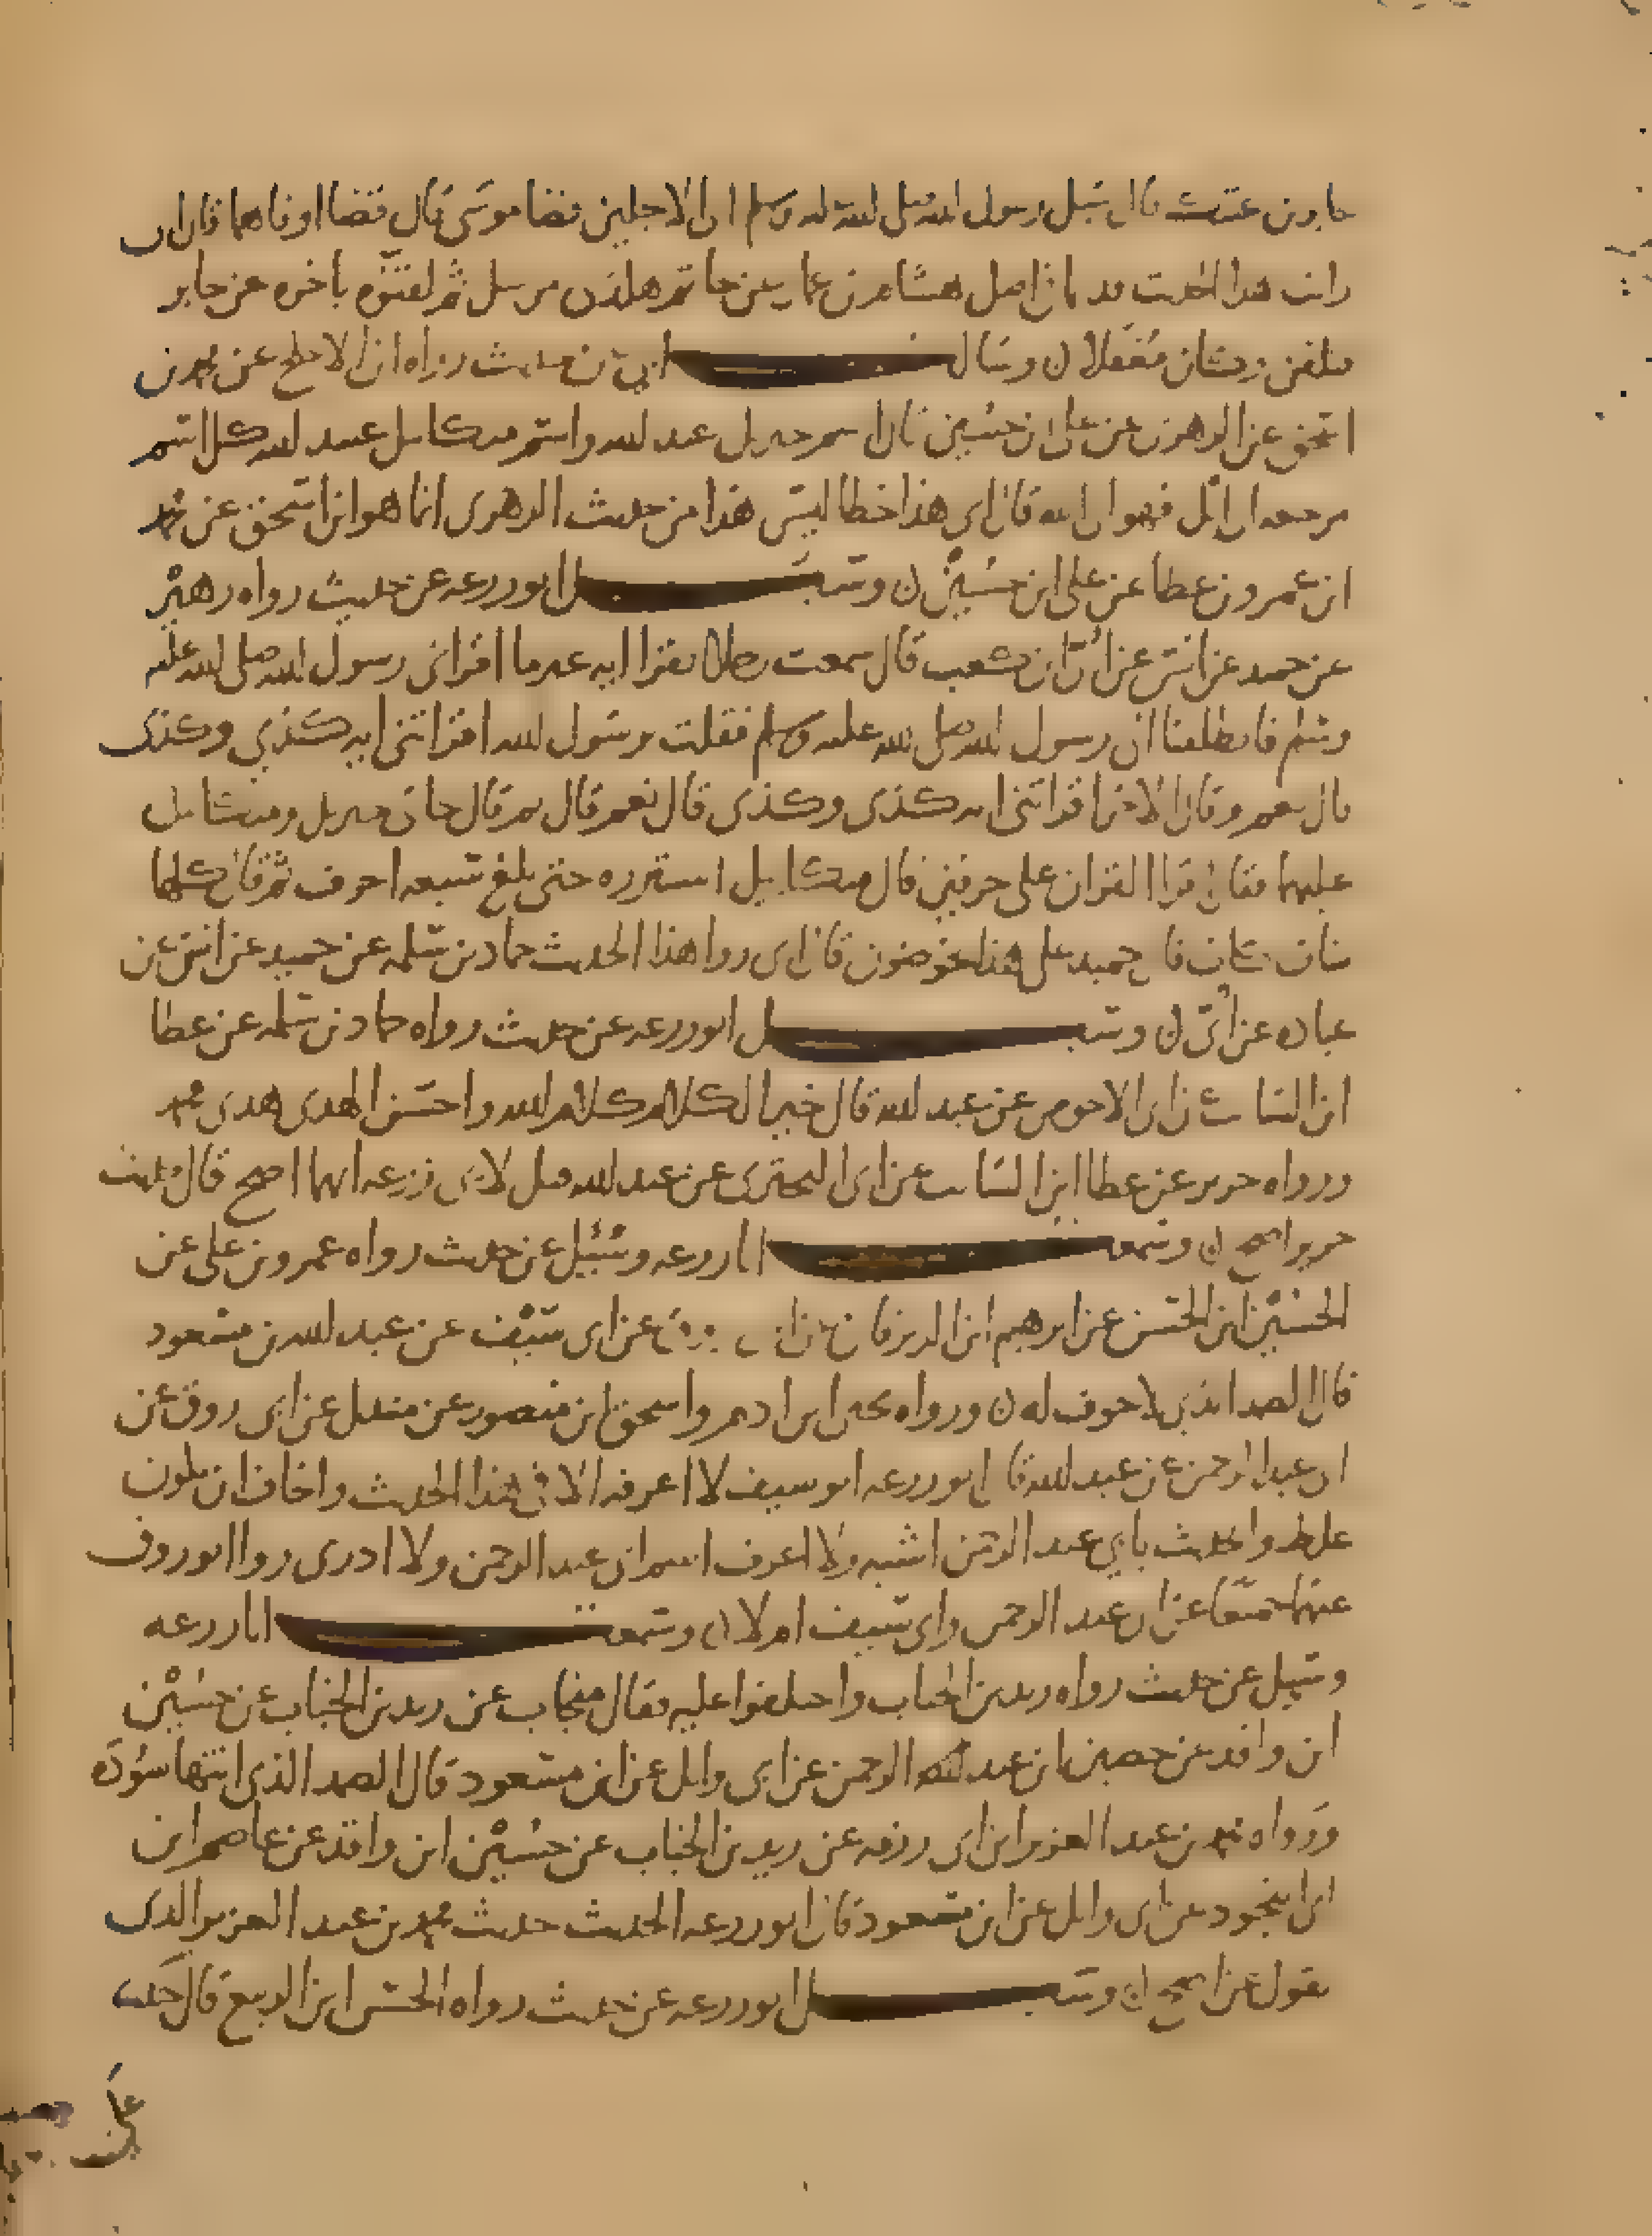 جابر بن عتيك قال سئل رسول الله صلى الله عليه وسلم اي الاجلين قضا موسى قال قضا اوفاهما قال ابي
رايت هذا الحديث قديما في اصل هشام بن عمار عن حاتم هكذى مرسل ثم لقنوه باخره عن جابر
فتلقن وكان مغفلا ن وسالت ابي عن حديث رواه ابن الاجلح عن محمد بن
اسحق عن الزهري عن علي بن حسين قال اسم جبريل عبد الله واسم ميكايل عبيد الله كل اسم
مرجعه الى ايل فهو الى الله قال ابي هذا خطا ليس هذا من حديث الزهري انما هو ابن اسحق عن محمد
ابن عمرو بن عطا عن علي ابن حسين ن وسئل ابو زرعه عن حديث رواه زهير
عن حميد عن انس عن ابي ان كعب قال سمعت رجلا يقرا ايه غير ما اقراني رسول الله صلى الله عليه
وسلم فانطلقنا الى رسول الله صلى الله عليه وسلم فقلت يرسول الله اقراتني ايه كذي وكذى
قال نعم وقال الاخر اقراتني ايه كذى وكذى قال نعم قال ثم قال جاني جبريل وميكايل
عليهما فقال اقرا القران على حرفين قال ميكايل استزده حتى بلغ سبعه احرف ثم قال كلها
شاف كاف قال حميد على هذا نحو قال ابي روا هذا الحديث حماد بن سلمه عن حميد عن انس عن
عباده عن ابي ن وسئل ابو زرعه عن حديث رواه حماد بن سلمه عن عطا
ابن السايب عن ابي الاحوص عن عبد الله قال خير الكلام كلام الله واحسن الهدى هدى محمد
ورواه جرير عن عطا ابن السايب عن ابي البحتري عن عبد الله قيل لابي زرعه ايهما اصح قال حديث
جرير اصح ن وسمعت ابا زرعه وسئيل عن حديث رواه عمرو بن علي عن
الحسين ابن الحسن عن ابرهيم ابن الزبرقان عن ابي روق عن ابي سيف عن عبد الله بن مسعود
قال الصمد الذي لا جوف له ن ورواه يحيى ابن ادم واسحق ابن منصور عن مندل عن ابي روق عن
ابي عبد الرحمن عن عبد الله قال ابو زرعه ابو سيف لا اعرفه الا في هذا الحديث واخاف ان يكون
غلط والحديث بابي عبد الرحمن اشبه ولا اعرف اسم ابي عبد الرحمن ولا ادري روا ابو روق
عنهما جميعا عن ابي عبد الرحمن وابي سيف ام لا ن وسمعت ابا زرعه
وسيل عن حديث رواه زيد بن الحباب واختلفوا عليه فقال منجاب عن زيد بن الحباب عن حسين
ابن واقد عن حصين بن عبد الرحمن عن ابي وايل عن ابن مسعود قال الصمد الذي انتها سودده
ورواه محمد بن عبد العزيز ابن ابي رزمه عن زيد بن الحباب عن حسين ابن واقد عن عاصم ابن
ابي النجود عن ابي وايل عن ابن مسعود قال ابو زرعه الحديث حديث محمد بن عبد العزيز الذي
يقول عن اصح ن وسئل ابو زرعه عن حديث رواه الحسن ابن الربيع قال حدث
علي